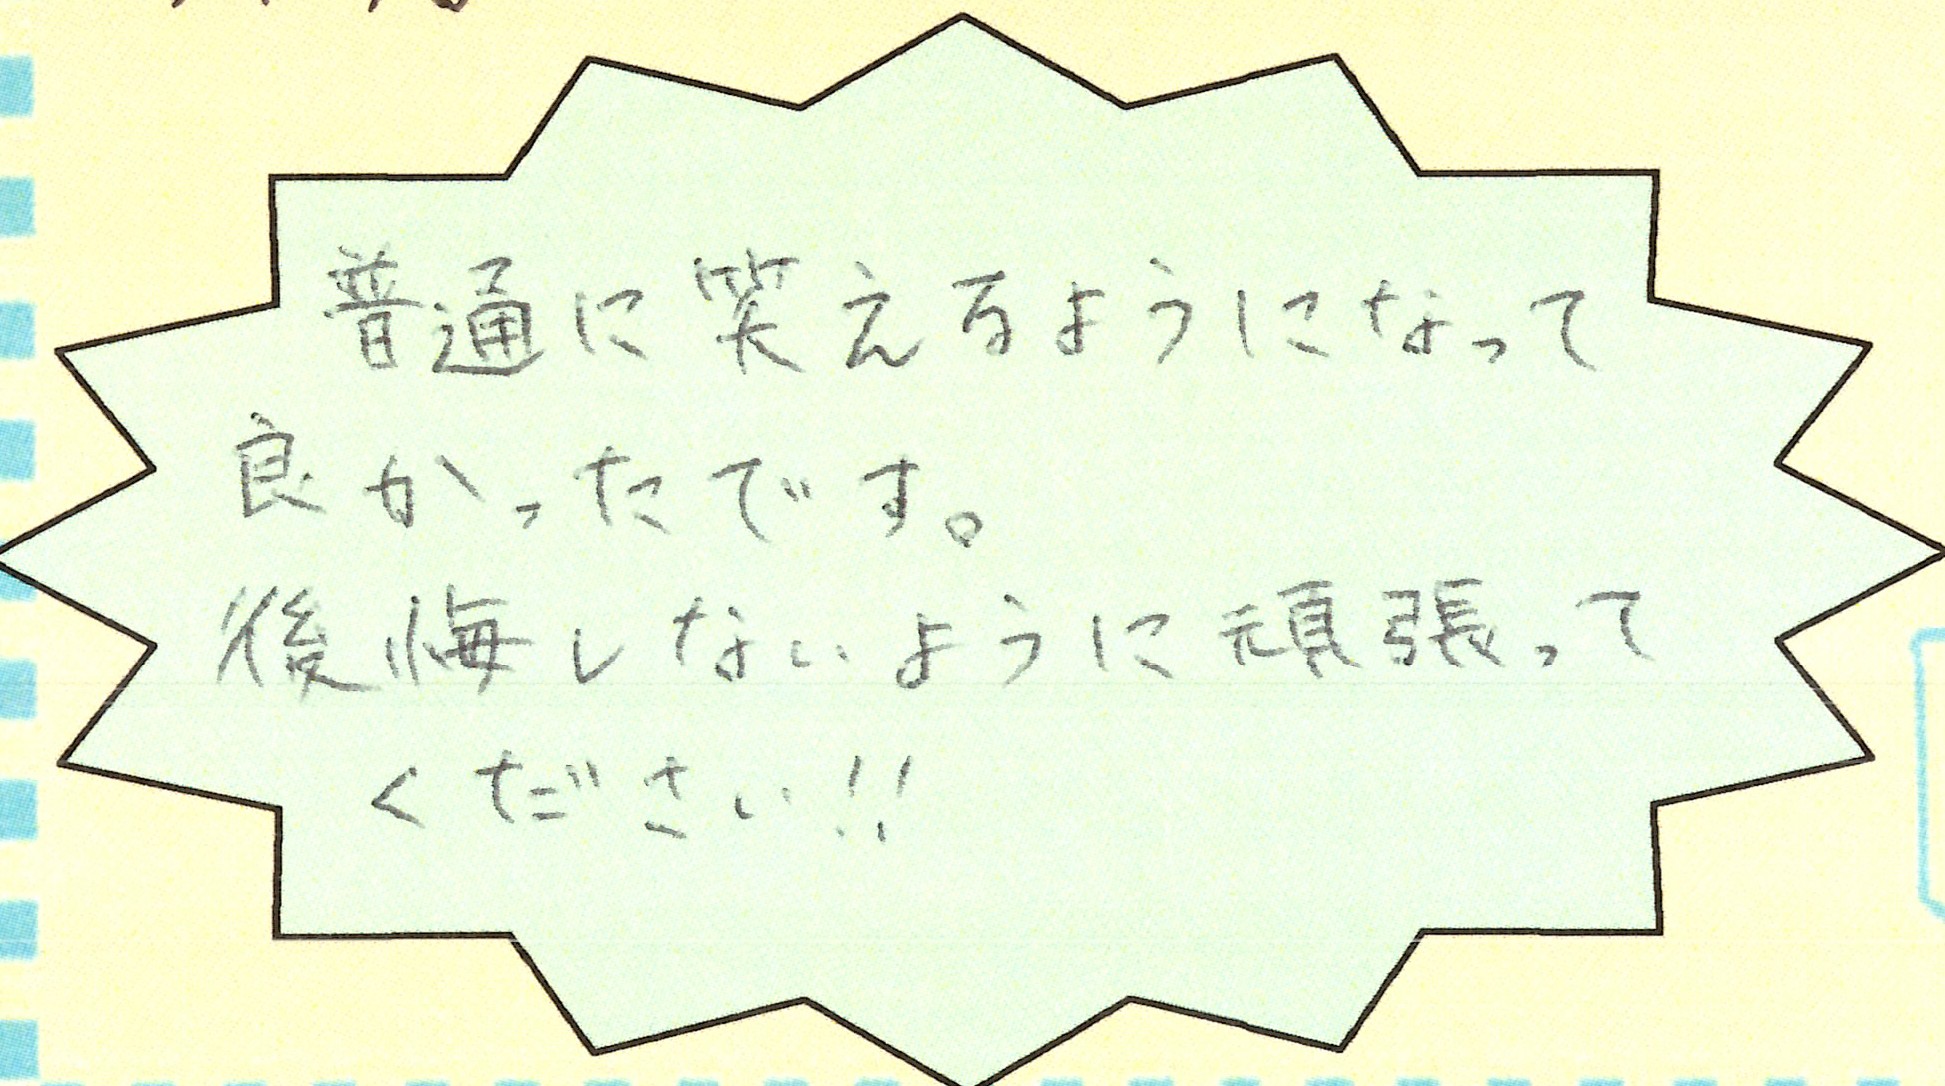 普通に笑えるようになって
良かったです。
後悔しないように頑張って
ください!!